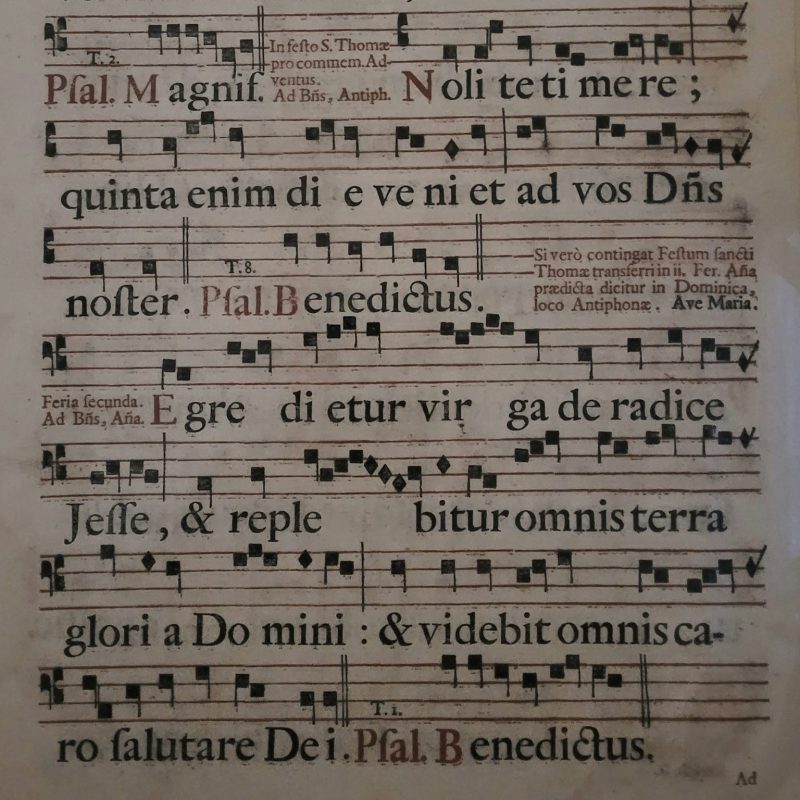 T. 2.
In festo S. Thomæ
pro commem. Ad-
ventus.
Psal. Magnif. Ad Bñs, Antiph. Nolite timere ;
quinta enim die veniet ad vos Dñs
T. 8.
Si verò contingat Festum sancti
Thomæ transferri in ii. Fer. Aña
prædicta dicitur in Dominica,
loco Antiphonæ. Ave Maria.
noſter. Pſal. Benedictus.
Feria ſecunda.
Ad Bñs, Aña. Egredietur virga de radice
Jeſſe, & replebitur omnis terra
gloria Domini : & videbit omnis ca-
T. 1.
ro ſalutare Dei. Pſal. Benedictus.
Ad